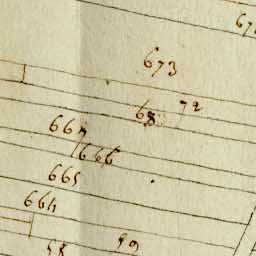 673
72
68
667
666
665
664
59